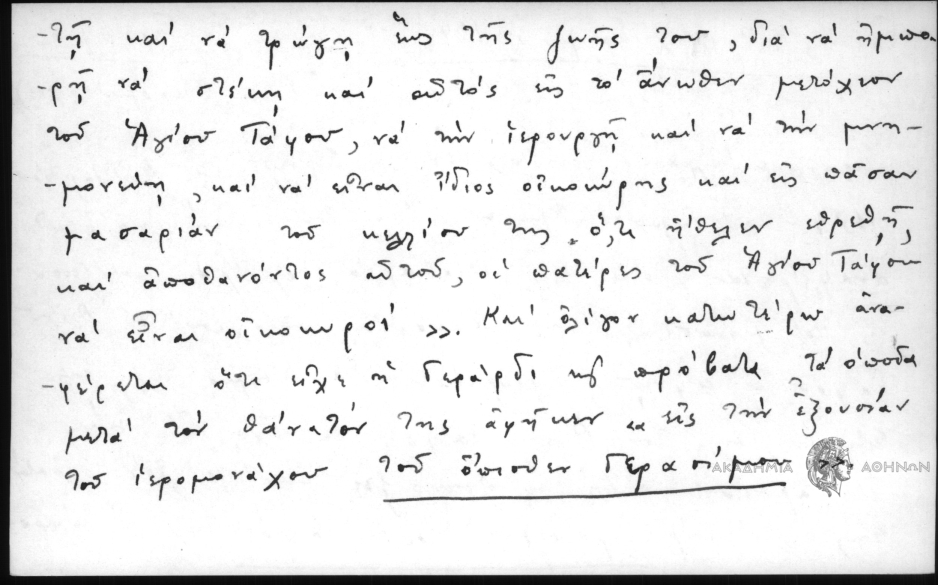 -τῇ καὶ νά τρώγῃ ἕως τῆς ζωῆς του, διά νά ἠμπο-
-ρῇ νά στέκῃ καί αὐτός εἰς τό ἄνωθεν μετόχιον
τοῦ Ἁγίου Τάφου, νά τήν ἱερουργῇ καί νά τήν μνη-
-μονεύῃ, καί νά εἶναι ἴδιος οἰκοκύρης καί εἰς πᾶσαν
μασαρίαν τοῦ κελλίου της, ὅ,τι ἤθελεν εὑρεθῇ,
καί ἀποθανόντος αὐτοῦ, οἱ πατέρες τοῦ Ἁγίου Τάφου
νά εἶναι οἰκοκυροί >>. Καί ὀλίγον κατωτέρω ἀνα-
-φέρεται ὅτι εἶχε ἡ Γεράρδι καί πρόβατα, τά ὁποῖα
μετά τόν θάνατόν της ἀφῆκεν << εἰς τήν ἐξουσίαν
τοῦ ἱερομονάχου τοῦ ὄπισθεν Γερασίμου >>.
ΑΚΑΔΗΜΙΑ ΑΘΗΝΩΝ